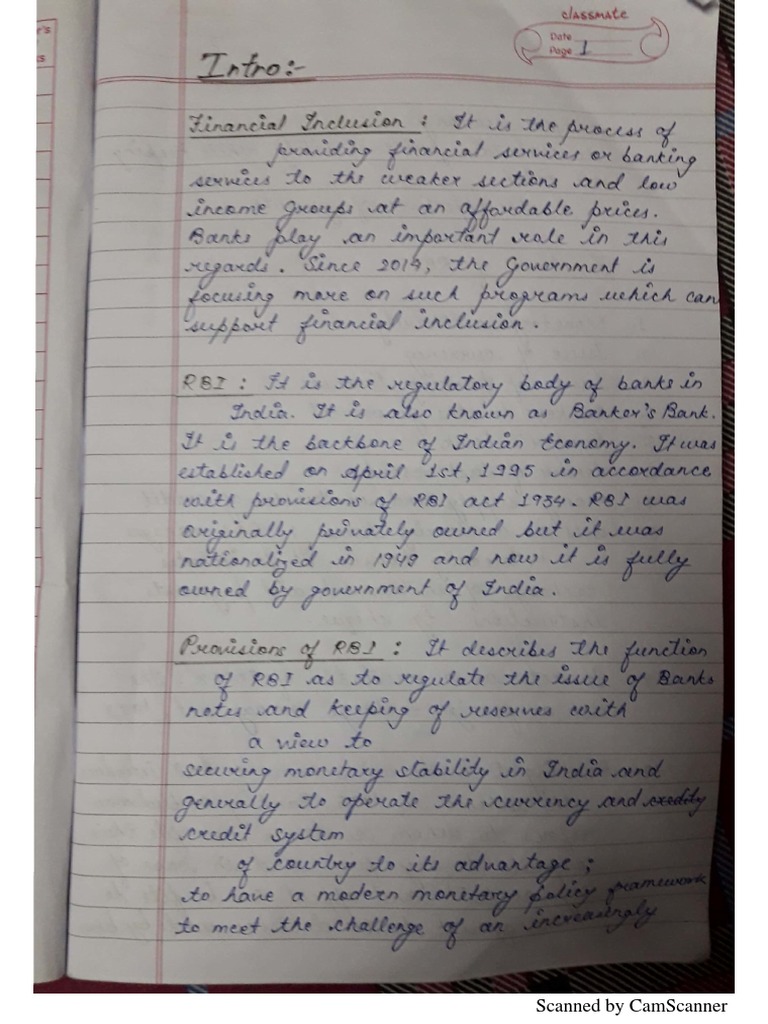 classmate
Date
Page 1
Intro:-
Financial Inclusion : It is the process of
providing financial services or banking
services to the weaker sections and low
income groups at an affordable prices.
Banks play an important role in this
regards. Since 2014, the Government is
focusing more on such programs which can
support financial inclusion.
RBI : It is the regulatory body of banks in
India. It is also known as Banker's Bank.
It is the backbone of Indian Economy. It was
established on April 1st, 1995 in accordance
with provisions of RBI act 1934. RBI was
originally privately owned but it was
nationalized in 1949 and now it is fully
owned by government of India.
Provisions of RBI : It describes the function
of RBI as to regulate the issue of Banks
notes and keeping of reserves with
a view to
securing monetary stability in India and
generally to operate the currency and
credit system
of country to its advantage ;
to have a modern monetary policy framework
to meet the challenge of an increasingly
Scanned by CamScanner